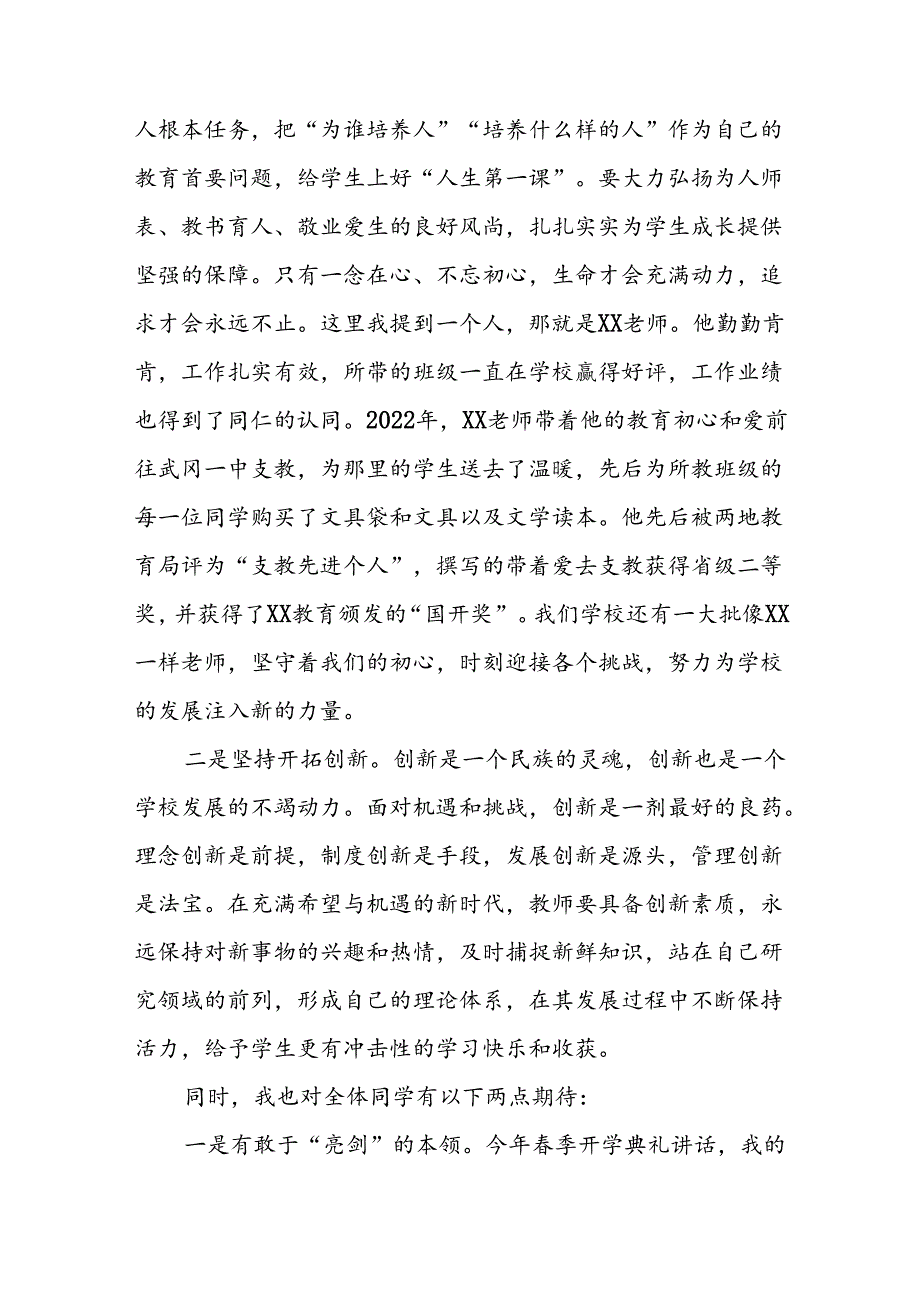 人根本任务，把“为谁培养人”“培养什么样的人”作为自己的
教育首要问题，给学生上好“人生第一课”。要大力弘扬为人师
表、教书育人、敬业爱生的良好风尚，扎扎实实为学生成长提供
坚强的保障。只有一念在心、不忘初心，生命才会充满动力，追
求才会永远不止。这里我提到一个人，那就是XX老师。他勤勤肯
肯，工作扎实有效，所带的班级一直在学校赢得好评，工作业绩
也得到了同仁的认同。2022年，XX老师带着他的教育初心和爱前
往武冈一中支教，为那里的学生送去了温暖，先后为所教班级的
每一位同学购买了文具袋和文具以及文学读本。他先后被两地教
育局评为“支教先进个人”，撰写的带着爱去支教获得省级二等
奖，并获得了XX教育颁发的“国开奖”。我们学校还有一大批像XX
一样老师，坚守着我们的初心，时刻迎接各个挑战，努力为学校
的发展注入新的力量。
二是坚持开拓创新。创新是一个民族的灵魂，创新也是一个
学校发展的不竭动力。面对机遇和挑战，创新是一剂最好的良药。
理念创新是前提，制度创新是手段，发展创新是源头，管理创新
是法宝。在充满希望与机遇的新时代，教师要具备创新素质，永
远保持对新事物的兴趣和热情，及时捕捉新鲜知识，站在自己研
究领域的前列，形成自己的理论体系，在其发展过程中不断保持
活力，给予学生更有冲击性的学习快乐和收获。
同时，我也对全体同学有以下两点期待：
一是有敢于“亮剑”的本领。今年春季开学典礼讲话，我的